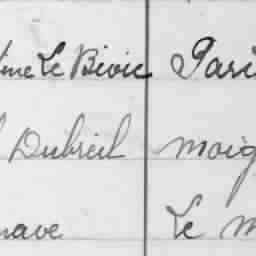 Le Bivic Pari
Dubreil moig
nave Le M